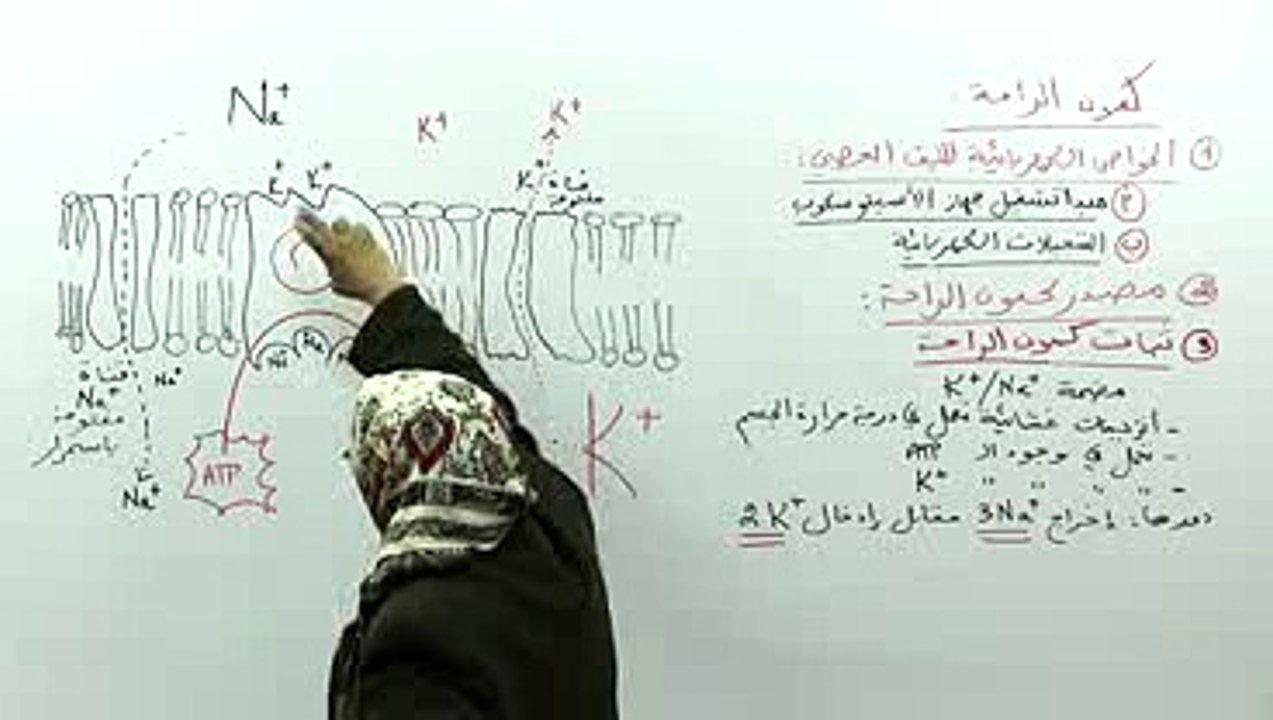 كمون الراحة.
① الخواص الكهربائية لليف العصبي:
Ⓟ مبدأ تشغيل جهاز الأسيلوسكوب
ⓑ التسجيلات الكهربائية
② مصدر كمون الراحة:
③ ثبات كمون الراحة
مضخة K⁺/Na⁺
- أنزيمات غشائية تعمل في درجة حرارة الجسم
- تعمل في وجود الـ ATP
- " " " K⁺
دورها: إخراج 3Na⁺ مقابل إدخال 2K⁺
Na⁺
K⁺
K⁺
K⁺ K⁺
K⁺
قناة
مفتوحة
Na Na
قناة
Na⁺
مفتوحة
باستمرار
Na⁺
Na⁺
ATP
K⁺